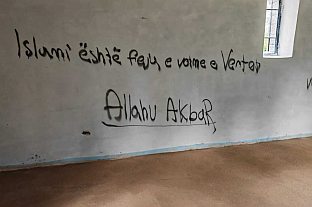 Islami është feja e vetme e Vertet
Allahu Akbar